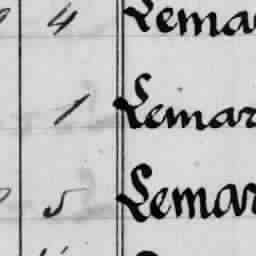 4 Lemar
1 Lemar
5 Lemar